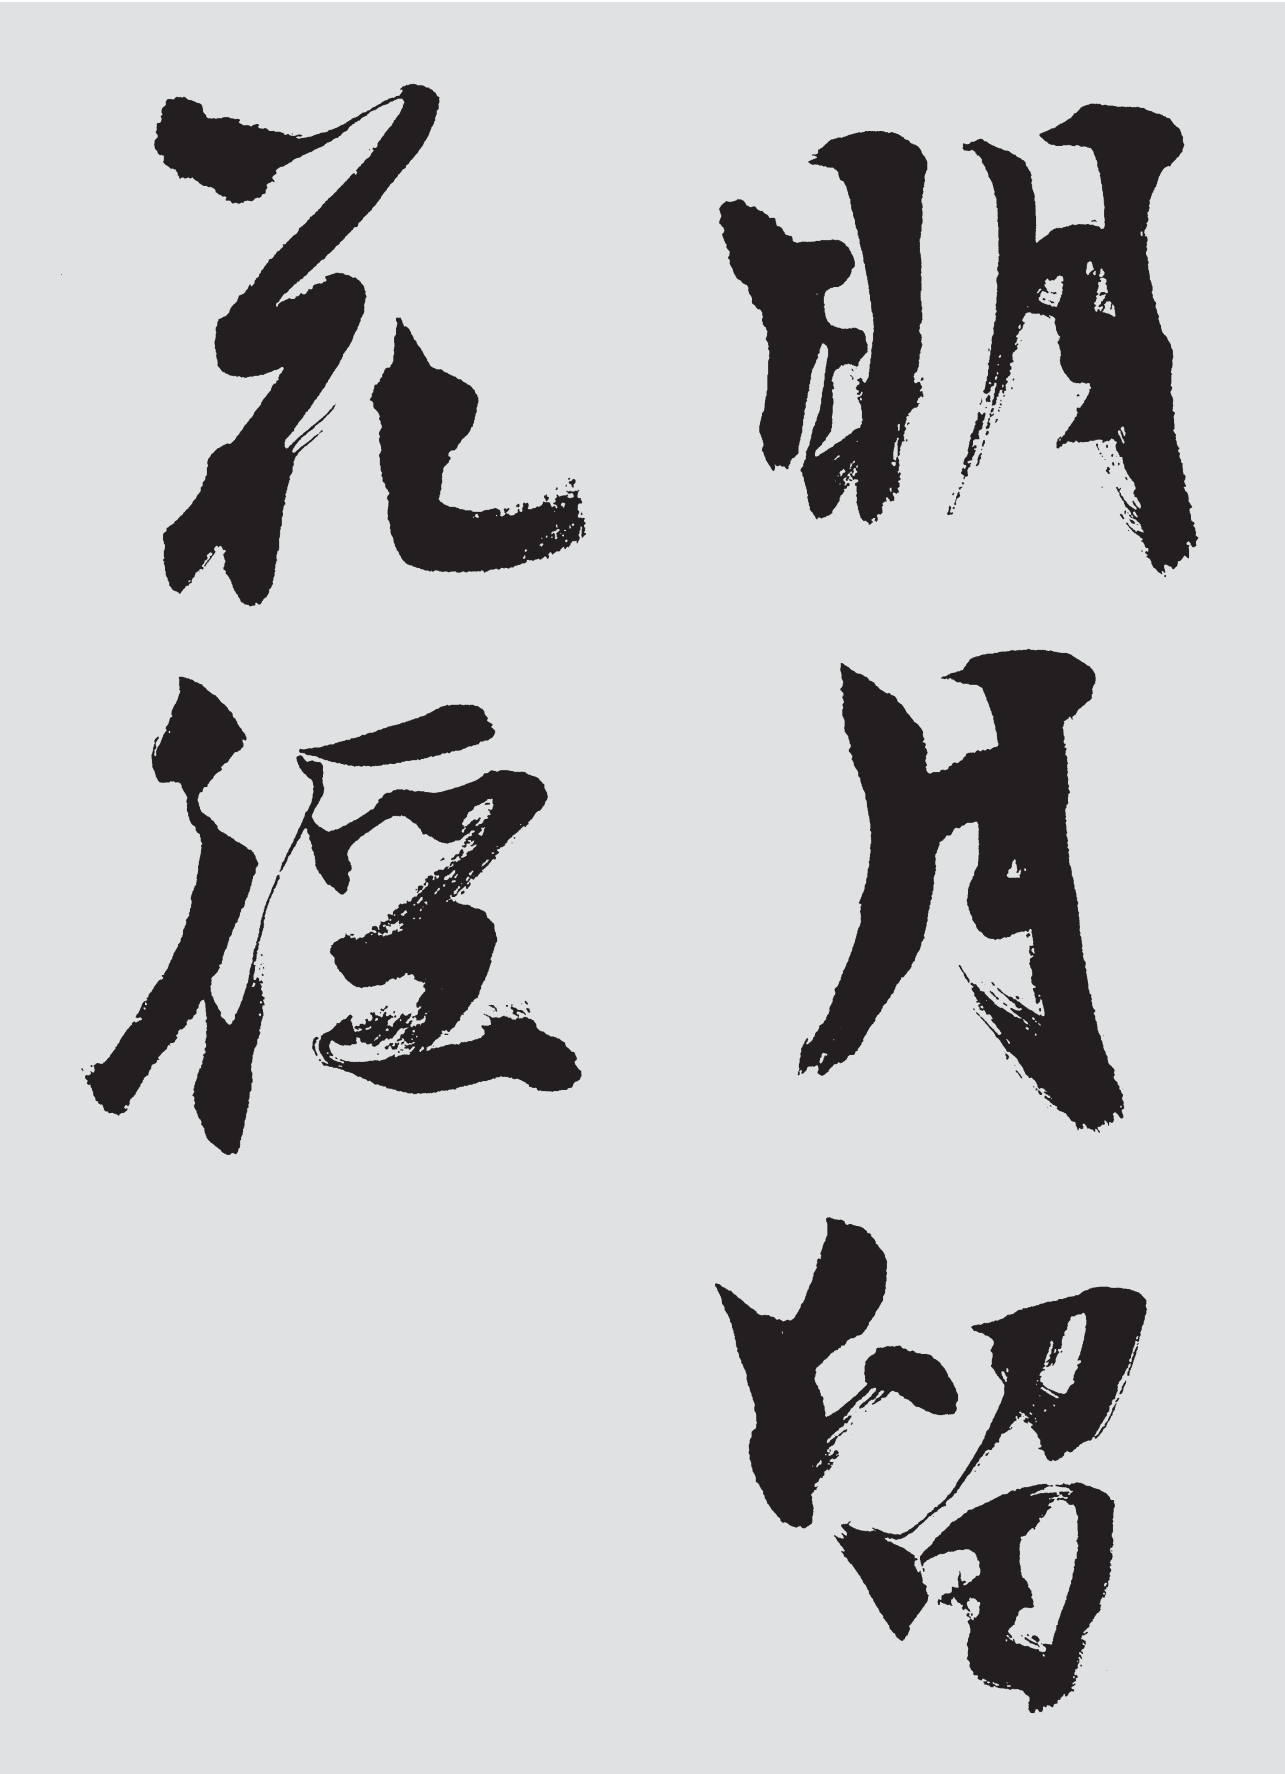 明月留
花径